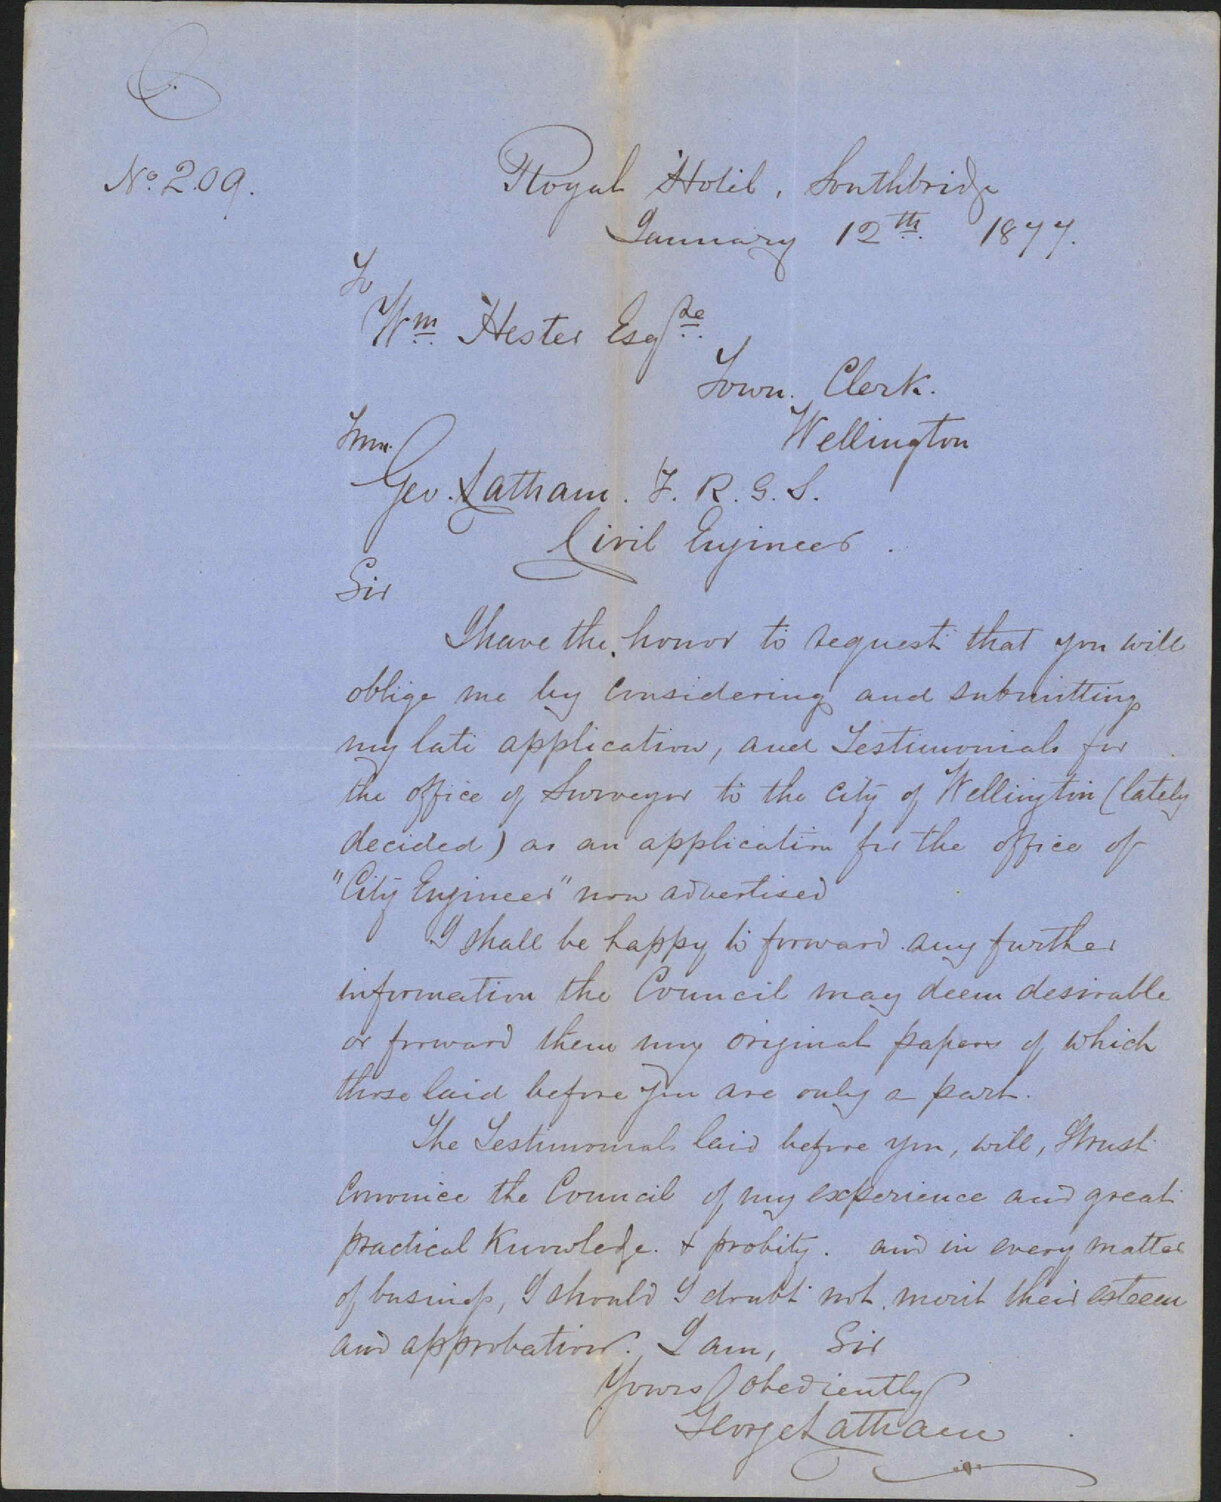 No. 209.
Royal Hotel, Southbridge
January 12th 1877.
To
Wm Hester Esqre
Town Clerk.
Wellington
From
Geo. Latham. F. R. G. S.
Civil Engineer.
Sir
I have the honor to request that you will
oblige me by considering and submitting
my late application, and Testimonials for
the office of Surveyor to the City of Wellington (lately
decided) as an application for the office of
"City Engineer" now advertised
I shall be happy to forward any further
information the Council may deem desirable
or forward them my original papers of which
those laid before you are only a part.
The Testimonials laid before you, will, I trust
convince the Council of my experience and great
practical Knowledge. & probity. and in every matter
of business, I should I doubt not merit their esteem
and approbation. I am, Sir
Yours obediently
George Latham